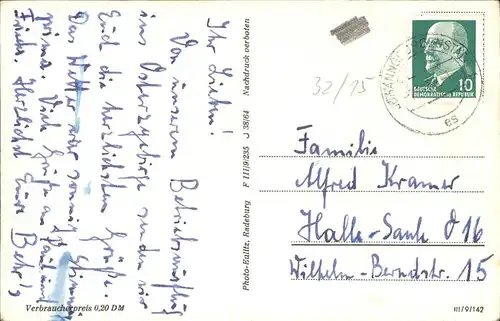 Ihr Lieben!
Von unserem Betriebsausflug
ins Osterzgebirge senden wir
Euch die herzlichsten Grüße.
Das Wetter war sonnig, Stimmung
prima. Viele Grüße an
Herzlichst Eure
Verbraucherpreis 0,20 DM
Photo-Bulitz, Radeburg F III/9/235 J 38/64 Nachdruck verboten
32/15
DEUTSCHE
DEMOKRATISCHE REPUBLIK
10
Familie
Alfred Kramer
Halle-Saale O 16
Wilhelm-Berndt­str. 15
III/9/142